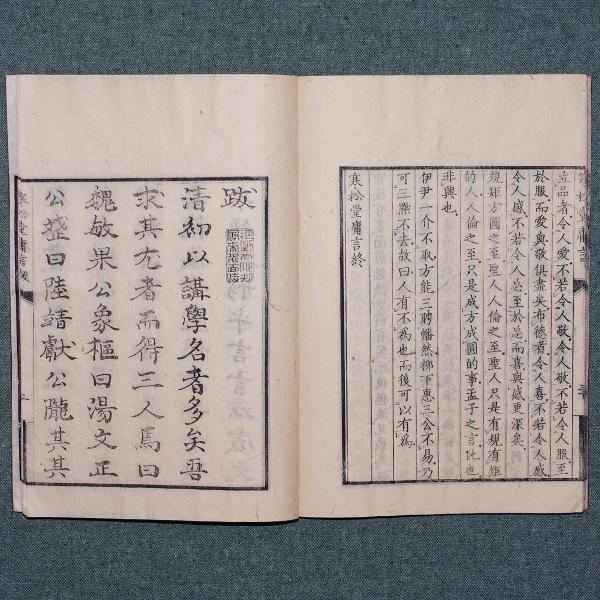 立品者令人愛不若令人敬令人敬不若令人服至
於服而愛與敬俱盡矣布德者令人喜不若令人感
令人感不若令人忘至於忘而喜與感更深矣
規矩方圓之至聖人人倫之至聖人只是有規有矩
的人人倫之至只是成方成圓的事孟子之言比也
非興也
伊尹一介不取方能三聘幡然柳下惠三公不易乃
可三黜不去故曰人有不為也而後可以有為
寒松堂庸言終
寒松堂庸言
跋
清初以講學名者多矣吾
求其尤者而得三人焉曰
魏敏果公象樞曰湯文正
公斌曰陸清獻公隴其其
寒松堂庸言跋